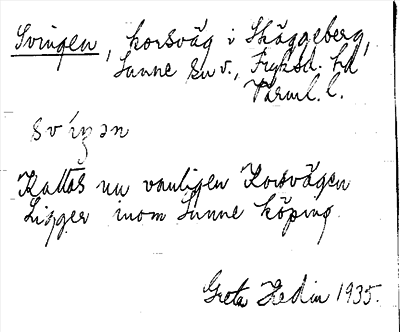 Svingen, korsväg i Skäggeberg,
Sunne sn v., Fryksd. hd
Värml. l.
svíŋən
Kallas nu vanligen Korsvägen
Ligger inom Sunne köping.
Greta Hedin 1935.